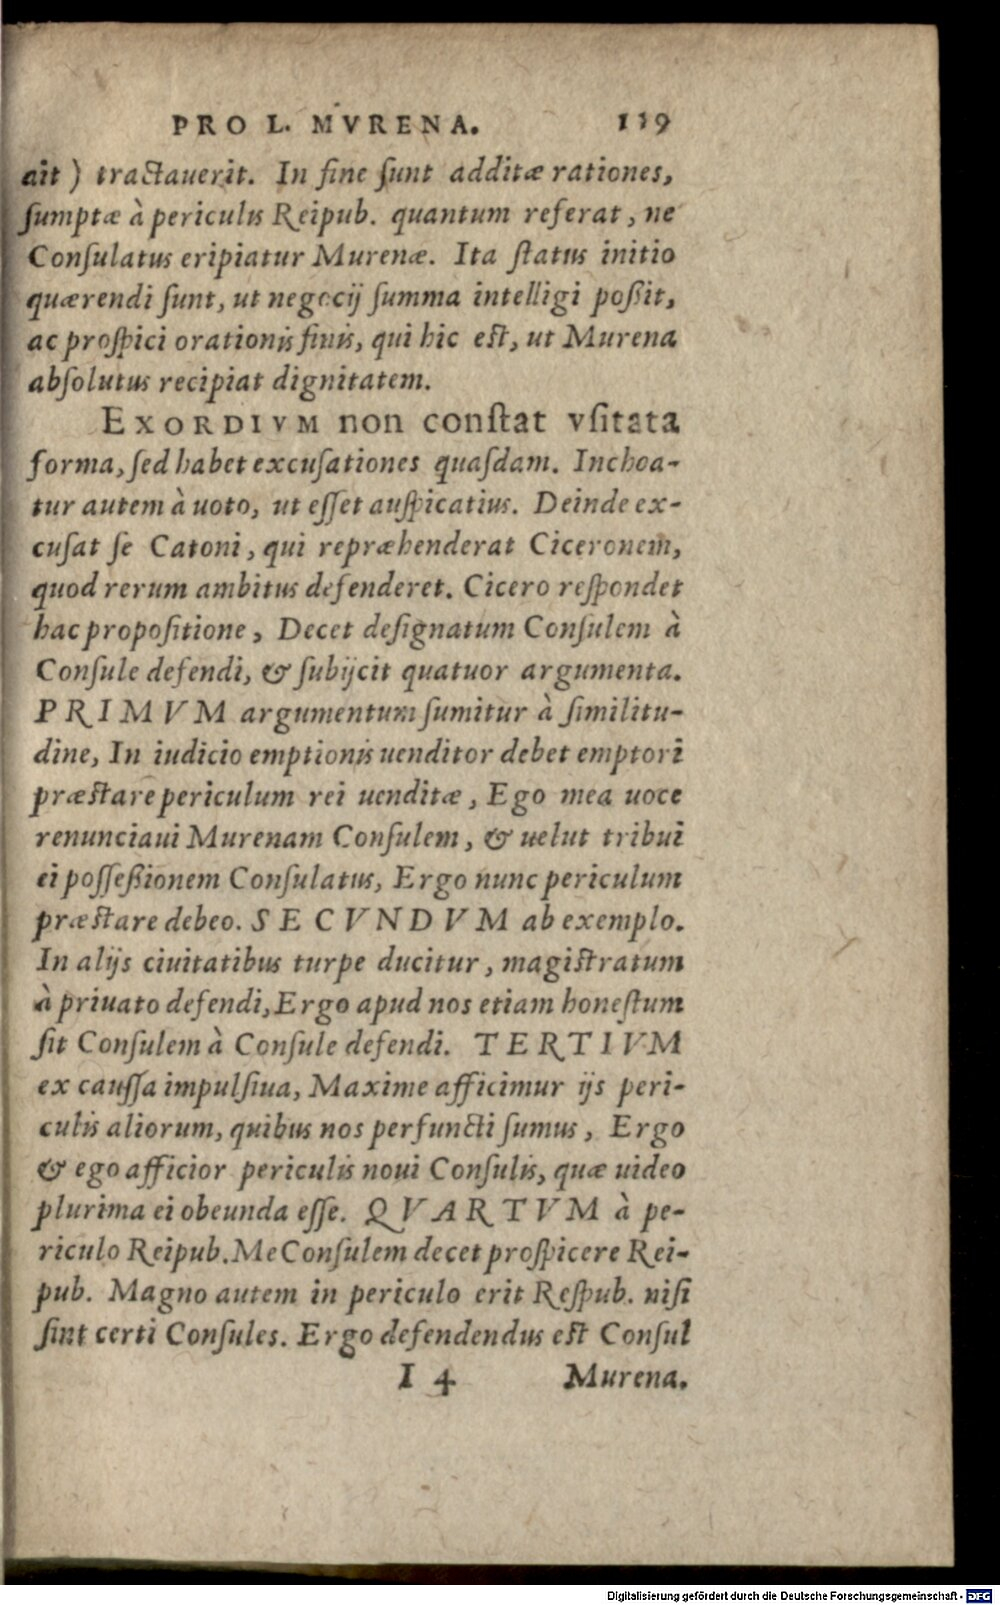 PRO L. MVRENA. 119
ait) tractauerit. In fine ſunt additæ rationes,
ſumptæ à periculis Reipub. quantum referat, ne
Conſulatus eripiatur Murenæ. Ita ſtatus initio
quærendi ſunt, ut negocij ſumma intelligi poßit,
ac proſpici orationis finis, qui hic eſt, ut Murena
abſolutus recipiat dignitatem.
EXORDIVM non conſtat vſitata
forma, ſed habet excuſationes quaſdam. Inchoa-
tur autem à uoto, ut eſſet auſpicatius. Deinde ex-
cuſat ſe Catoni, qui repræhenderat Ciceronem,
quod rerum ambitus defenderet. Cicero reſpondet
hac propoſitione, Decet deſignatum Conſulem à
Conſule defendi, & ſubijcit quatuor argumenta.
PRIMVM argumentum ſumitur à ſimilitu-
dine, In iudicio emptionis uenditor debet emptori
præſtare periculum rei uenditæ, Ego mea uoce
renunciaui Murenam Conſulem, & uelut tribui
ei poſſeßionem Conſulatus, Ergo nunc periculum
præſtare debeo. SECVNDVM ab exemplo.
In alijs ciuitatibus turpe ducitur, magiſtratum
à priuato defendi, Ergo apud nos etiam honeſtum
ſit Conſulem à Conſule defendi. TERTIVM
ex cauſſa impulſiua, Maxime afficimur ijs peri-
culis aliorum, quibus nos perfuncti ſumus, Ergo
& ego afficior periculis noui Conſulis, quæ uideo
plurima ei obeunda eſſe. QVARTVM à pe-
riculo Reipub. Me Conſulem decet proſpicere Rei-
pub. Magno autem in periculo erit Reſpub. niſi
ſint certi Conſules. Ergo defendendus eſt Conſul
I 4 Murena.
Digitalisierung gefördert durch die Deutsche Forschungsgemeinschaft - DFG